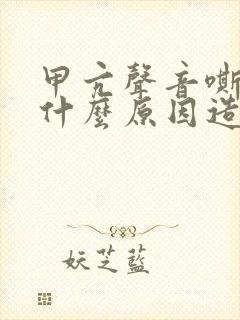 甲亢聲音嘶
什麼原因造
妖芝藍